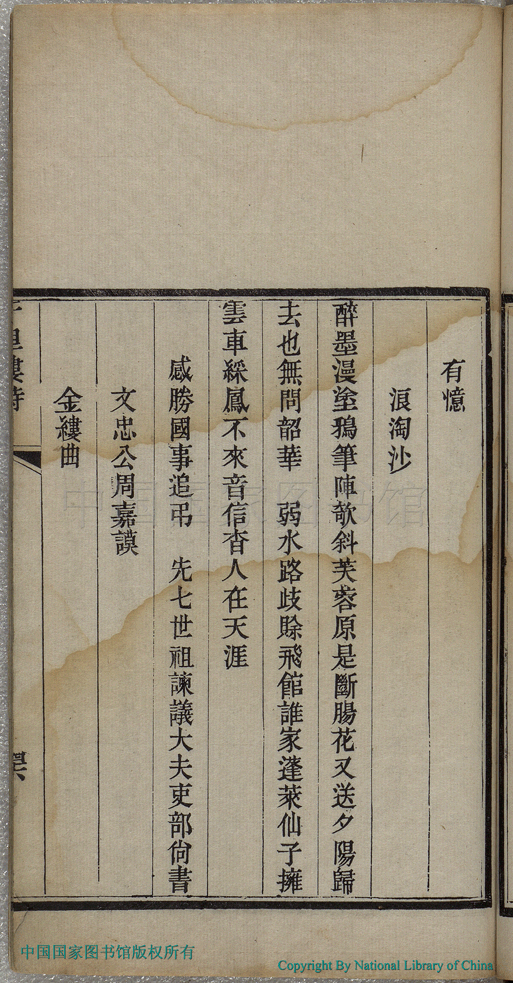 有憶
浪淘沙
醉墨漫塗鴉筆陣欹斜芙蓉原是斷腸花又送夕陽歸
去也無問韶華　弱水路歧賖飛館誰家蓬萊仙子擁
雲車綵鳳不來音信杳人在天涯
感勝國事追弔　先七世祖諫議大夫吏部尚書
文忠公周嘉謨
金縷曲
中国国家图书馆版权所有
Copyright By National Library of China